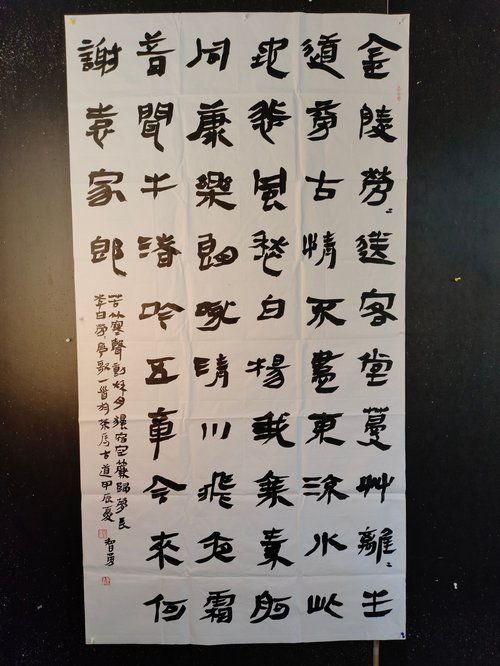 金陵勞〻送客堂蔓艸離〻生
道旁古情不盡東流水此
地悲風愁白楊我乘素舸
同康樂朗咏清川飛夜霜
昔聞牛渚吟五章今來何
謝袁家郎
苦竹寒聲動秋月獨宿空簾歸夢長
李白勞〻亭歌一首於茶馬古道甲辰夏
智勇